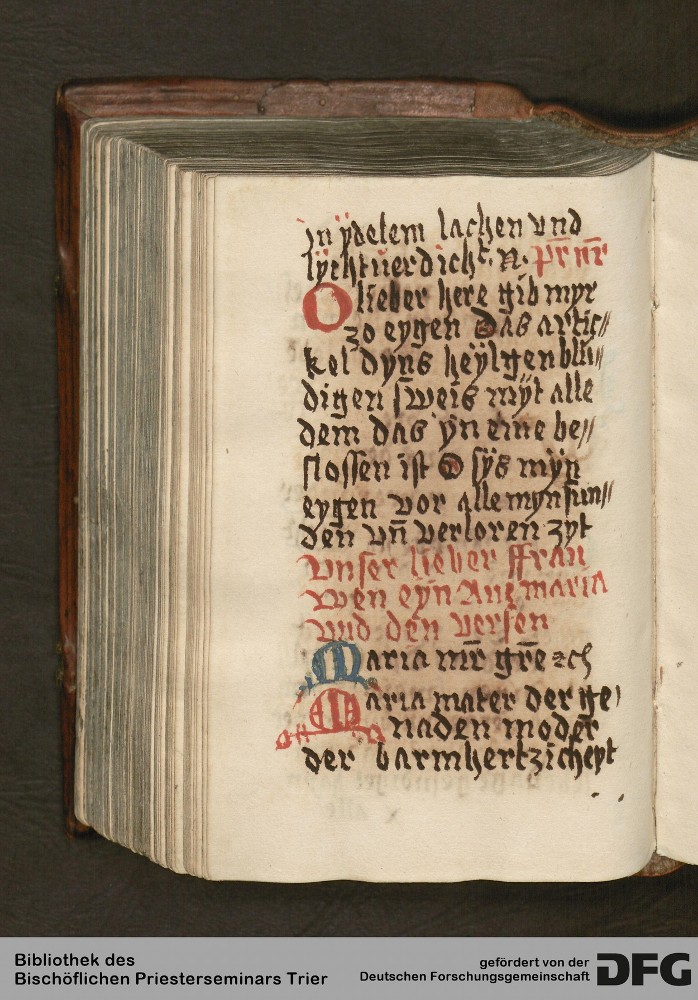 jn ÿdelem lachen vnd
lÿchtuerdichᵗ. N. pr̄ nr̄
O lieber here gib myr
zo eygen Das artic//
kel dyns heÿlgen blu//
digen sweis mÿt alle
dem das ÿn eine be//
slossen ist O sÿs mÿn
eygen vor alle myn sun//
den vn̄ verloren zyt
Unser lieber ffrau
wen eyn Aue maria
vnd den versen
Maria mr̄ gr̄e ⁊ch
Maria mater der ge
naden moder
der barmhertzicheyt
Bibliothek des
Bischöflichen Priesterseminars Trier
gefördert von der
Deutschen Forschungsgemeinschaft DFG